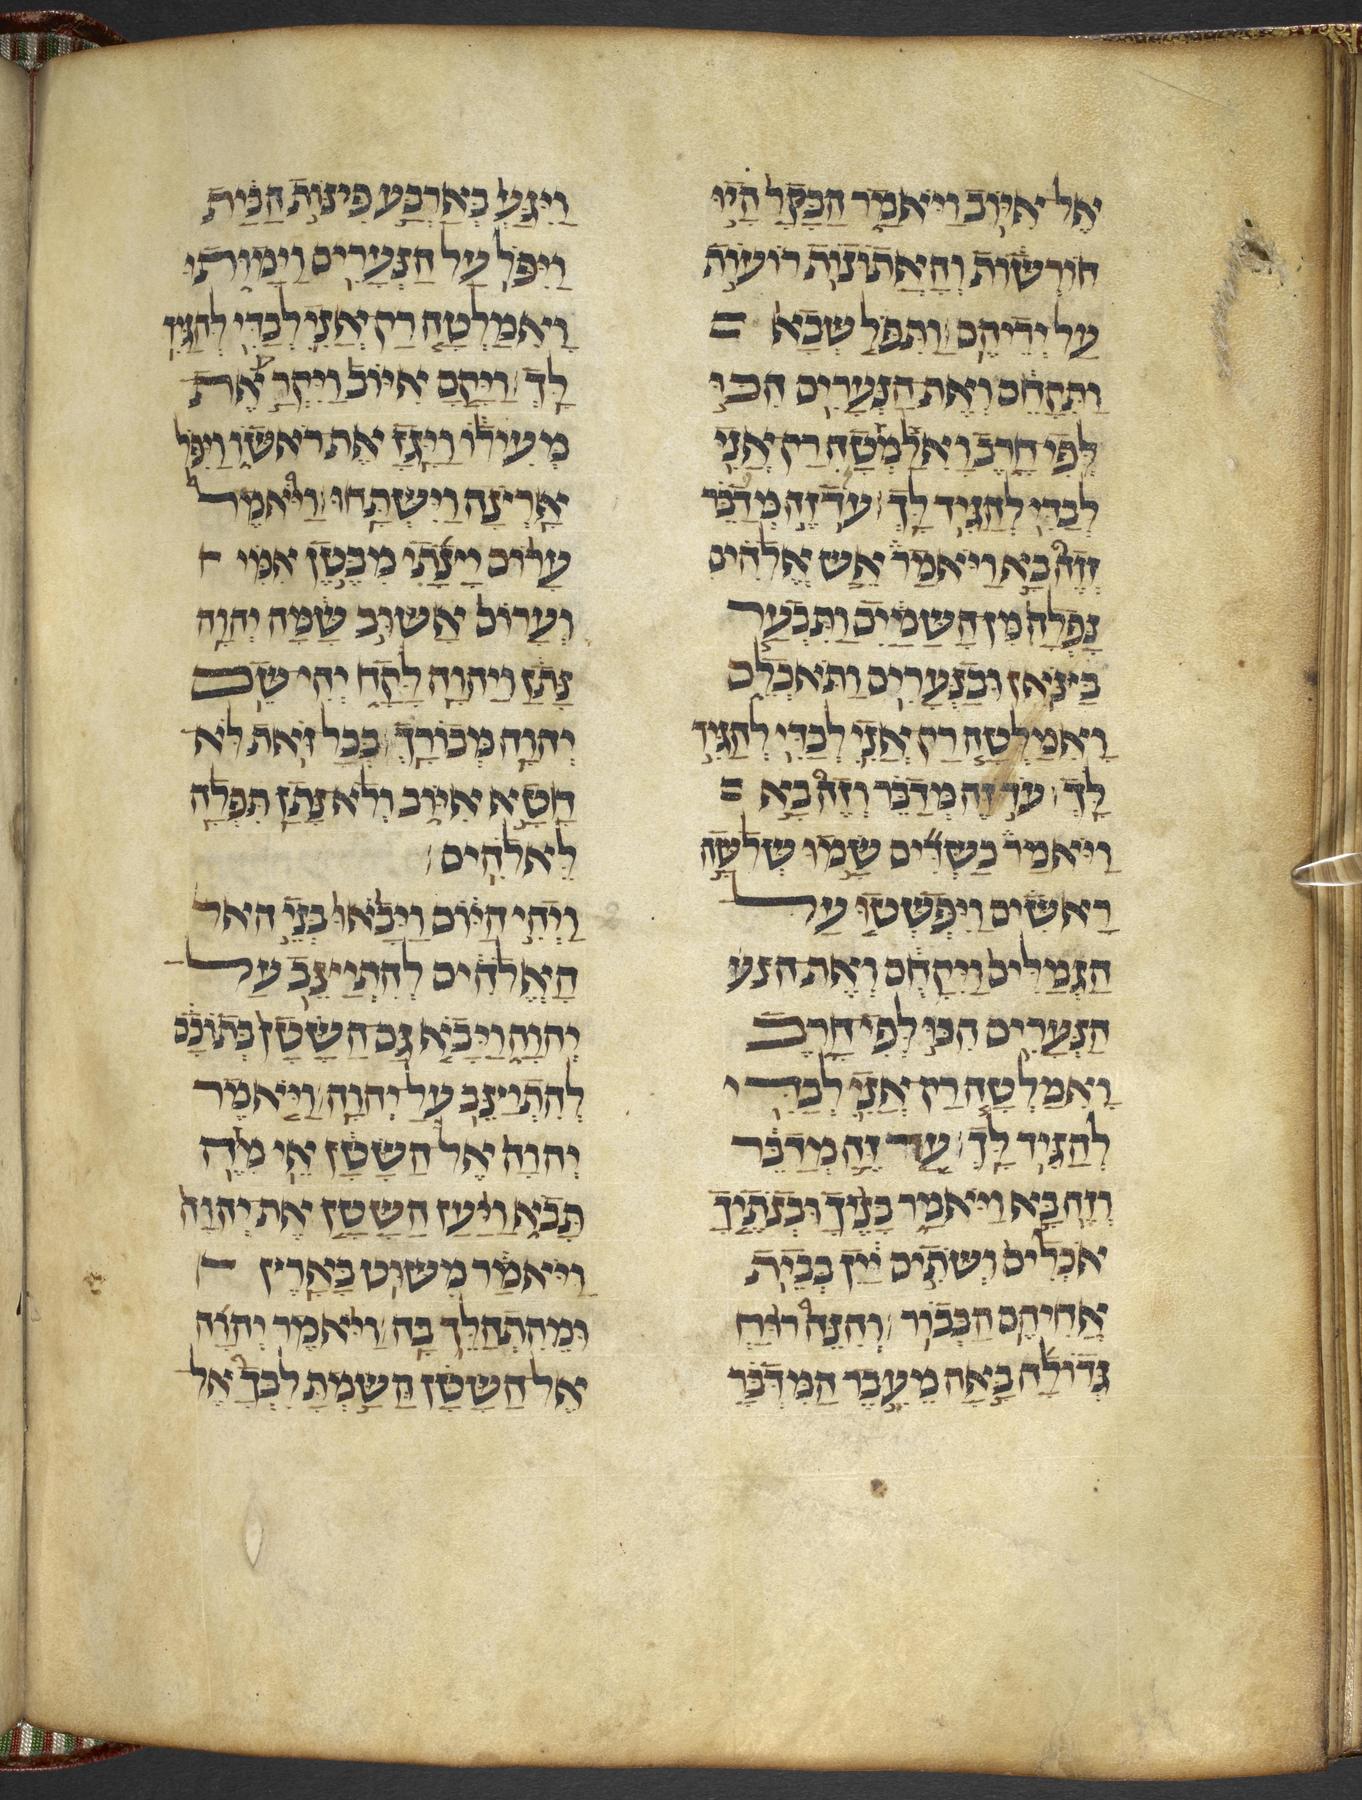 אֶל־אִיּוֹב וַיֹּאמַר הַבָּקָר הָיוּ
חוֹרְשׁוֹת וְהָאֲתוֹנוֹת רוֹעוֹת
עַל יְדֵיהֶם וַתִּפֹּל שְׁבָא
וַתִּקָּחֵם וְאֶת הַנְּעָרִים הִכּוּ
לְפִי חָרֶב וָאִמָּלְטָה רַק אֲנִי
לְבַדִּי לְהַגִּיד לָךְ עֹד זֶה מְדַבֵּר
וְזֶה בָּא וַיֹּאמַר אֵשׁ אֱלֹהִים
נָפְלָה מִן הַשָּׁמַיִם וַתִּבְעַר
בַּצֹּאן וּבַנְּעָרִים וַתֹּאכְלֵם
וָאִמָּלְטָה רַק אֲנִי לְבַדִּי לְהַגִּיד
לָךְ עֹד זֶה מְדַבֵּר וְזֶה בָּא
וַיֹּאמַר כַּשְׂדִּים שָׂמוּ שְׁלֹשָׁה
רָאשִׁים וַיִּפְשְׁטוּ עַל
הַגְּמַלִּים וַיִּקָּחֻם וְאֶת הנע
הַנְּעָרִים הִכּוּ לְפִי חָרֶב
וָאִמָּלְטָה רַק אֲנִי לְבַדִּי
לְהַגִּיד לָךְ עַד זֶה מְדַבֵּר
וְזֶה בָּא וַיֹּאמַר בָּנֶיךָ וּבְנֹתֶיךָ
אֹכְלִים וְשֹׁתִים יַיִן בְּבֵית
אֲחִיהֶם הַבְּכוֹר וְהִנֵּה רוּחַ
גְּדוֹלָה בָּאָה מֵעֵבֶר הַמִּדְבָּר
וַיִּגַּע בְּאַרְבַּע פִּינּוֹת הַבַּיִת
וַיִּפֹּל עַל הַנְּעָרִים וַיָּמוּתוּ
וָאִמָּלְטָה רַק אֲנִי לְבַדִּי לְהַגִּיד
לָךְ וַיָּקָם אִיּוֹב וַיִּקְרַע אֶת
מְעִילוֹ וַיָּגָז אֶת רֹאשׁוֹ וַיִּפֹּל
אָרְצָה וַיִּשְׁתָּחוּ וַיֹּאמֶר
עָרוֹם יָצָתִי מִבֶּטֶן אִמִּי
וְעָרוֹם אָשׁוּב שָׁמָּה יְהוָה
נָתַן וַיהוָה לָקָח יְהִי שֵׁם
יְהוָה מְבוֹרָךְ בְּכָל זֹאת לֹא
חָטָא אִיּוֹב וְלֹא נָתַן תִּפְלָה
לֵאלֹהִים
וַיְהִי הַיּוֹם וַיָּבֹאוּ בְּנֵי האל
הָאֱלֹהִים לְהִתְיַצֵּב עַל
יְהוָה וַיָּבוֹא גַם הַשָּׂטָן בְּתוֹכָם
לְהִתְיַצֵּב עַל יְהוָה וַיֹּאמֶר
יְהוָה אֶל הַשָּׂטָן אֵי מִזֶּה
תָּבֹא וַיַּעַן הַשָּׂטָן אֶת יְהוָה
וַיֹּאמַר מִשּׁוּט בָּאָרֶץ
וּמֵהִתְהַלֵּךְ בָּהּ וַיֹּאמֶר יְהוָה
אֶל הַשָּׂטָן הֲשַׂמְתָּ לִבְּךָ אֶל